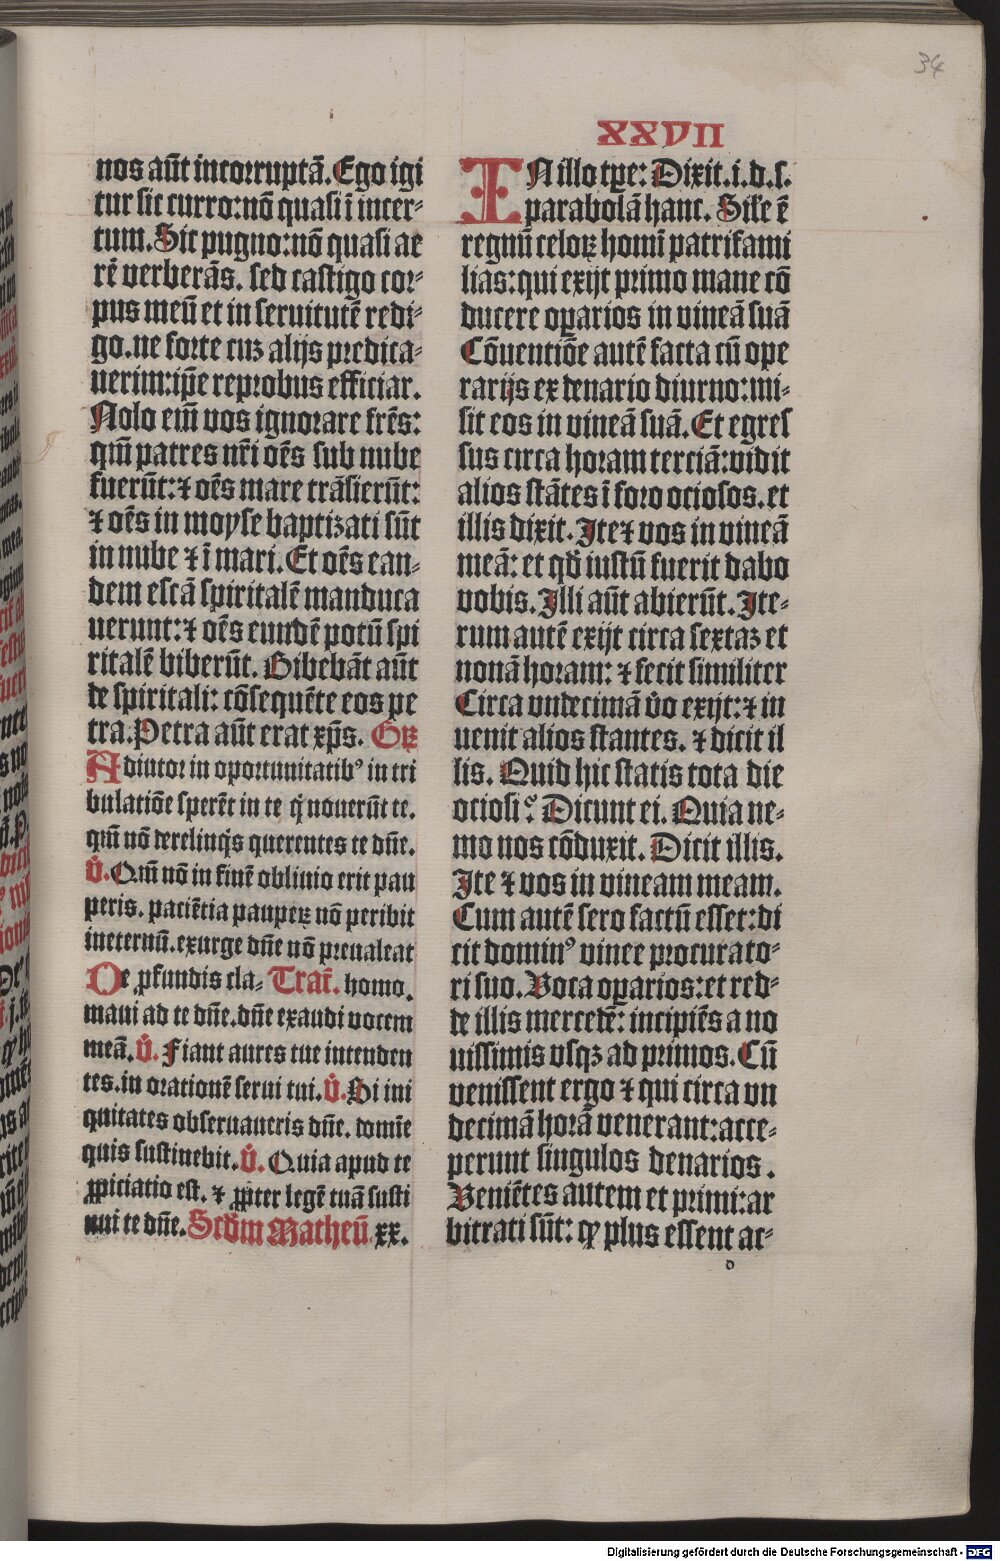 34
XXVII
nos aūt incorruptā. Ego igi
tur sic curro: nō quasi ī incer⸗
tum. Sic pugno: nō quasi ae
rē verberās. sed castigo cor⸗
pus meū et in seruitutē redi⸗
go. ne forte cuꝫ alijs predica⸗
uerim: ip̄e reprobus efficiar.
Nolo eīm vos ignorare frēs:
qm̄ patres nr̄i oēs sub nube
fuerūt: ⁊ oēs mare trāsierūt:
⁊ oēs in moyse baptizati sūt
in nube ⁊ ī mari. Et oēs ean⸗
dem escā spiritalē manduca
uerunt: ⁊ oēs eundē potū spi
ritalē biberūt. Bibebāt aūt
de spiritali: cōsequēte eos pe
tra. Petra aūt erat xp̄s. Gꝝ
Adiutor in oportunitatibꝰ in tri
bulatiōe sperēt in te q̇ nouerūt te.
qm̄ nō derelinq̇s querentes te dn̄e.
V̊. Qm̄ nō in finē obliuio erit pau
peris. paciētia pauperꝝ nō peribit
ineternū. exurge dn̄e nō preualeat
De ꝓfundis cla⸗ Tract̄. homo.
maui ad te dn̄e. dn̄e exaudi vocem
meā. V̊. Fiant aures tue intenden
tes. in orationē serui tui. V̊. Si ini
quitates obseruaueris dn̄e. domīe
quis sustinebit. V̊. Quia apud te
ꝓpiciatio est. ⁊ ꝓpter legē tuā susti
nui te dn̄e. Scd̄m Matheū xx.
IN illo tp̄e: Dixit. i. d. s.
parabolā hanc. Sil̄e ē
regnū celoꝝ homī patrifami
lias: qui exijt primo mane cō
ducere oꝑarios in vineā suā
Cōuentiōe autē facta cū ope
rarijs ex denario diurno: mi⸗
sit eos in vineā suā. Et egres
sus circa horam terciā: vidit
alios stātes ī foro ociosos. et
illis dixit. Ite ⁊ vos in vineā
meā: et qd̄ iustū fuerit dabo
vobis. Illi aūt abierūt. Ite⸗
rum autē exijt circa sextaꝫ et
nonā horam: ⁊ fecit similiter
Circa vndecimā v̊o exijt: ⁊ in
uenit alios stantes. ⁊ dicit il
lis. Quid hic statis tota die
ociosi? Dicunt ei. Quia ne⸗
mo nos cōduxit. Dicit illis.
Ite ⁊ vos in vineam meam.
Cum autē sero factū esset: di
cit dominꝰ vinee procurato⸗
ri suo. Voca oꝑarios: et red⸗
de illis mercedē: incipiēs a no
uissimis vsqꝫ ad primos. Cū
venissent ergo ⁊ qui circa vn
decimā horā venerant: acce⸗
perunt singulos denarios.
Veniētes autem et primi: ar
bitrati sūt: ꝙ plus essent ac⸗
d
Digitalisierung gefördert durch die Deutsche Forschungsgemeinschaft - DFG